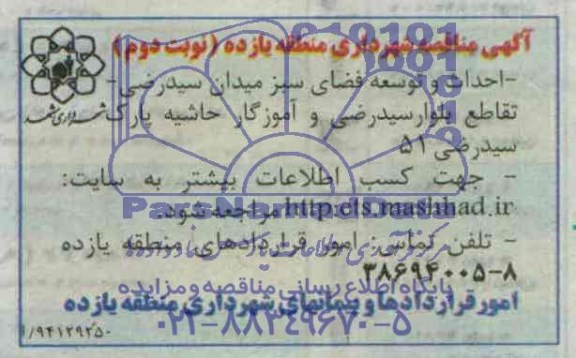 آگهی مناقصه شهرداری منطقه یازده (نوبت دوم)
-احداث و توسعه فضای سبز میدان سیدرضی-
تقاطع بلوارسیدرضی و آموزگار حاشیه پارک
سیدرضی ۵۱
- جهت کسب اطلاعات بیشتر به سایت:
http:ets.mashhad.ir مراجعه شود.
- تلفن تماس: امور قراردادهای منطقه یازده
۳۸۶۹۴۰۰۵-۸
امور قراردادها و پیمانهای شهرداری منطقه یازده
شهرداری مشهد
/۹۴۱۲۹۲۵۰
پایگاه اطلاع رسانی مناقصه و مزایده
۰۲۱-۸۸۳۴۹۶۷۰-۵